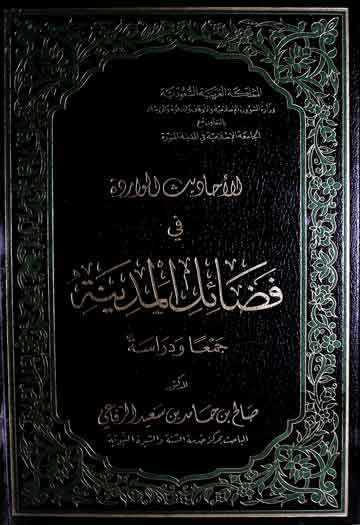 المملكة العربية السعودية
وزارة الشؤون الإسلامية والأوقاف والدعوة والإرشاد
بالتعاون مع
الجامعة الإسلامية في المدينة المنورة
الأحاديث الواردة
في
فضائل المدينة
جمعًا ودراسة
للدكتور
صالح بن حامد بن سعيد الرفاعي
الباحث بمركز خدمة السنة والسيرة النبوية